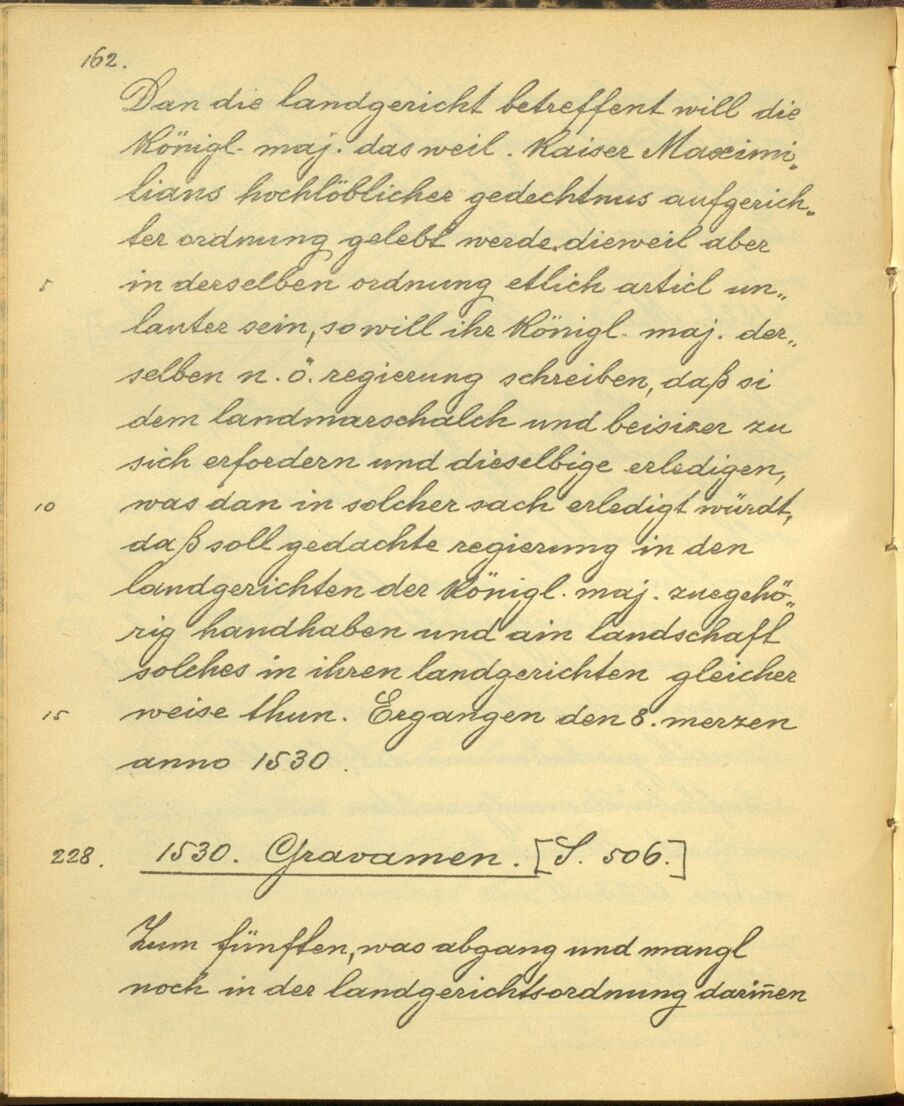 162.
Dan die landgericht betreffent will die
Königl. maj. das weil. Kaiser Maximi„
lians hochlöblicher gedechtnus aufgerich„
ter ordnung gelebt werde, dieweil aber
5 in derselben ordnung etlich articl un„
lauter sein, so will ihr Königl. maj. der„
selben n. ö. regierung schreiben, daß si
dem landmarschalch und beisizer zu
sich erfordern und dieselbige erledigen,
10 was dan in solcher sach erledigt würdt,
daß soll gedachte regierung in den
landgerichten der Königl. maj. zuegehö„
rig handhaben und ain landschaft
solches in ihren landgerichten gleicher
15 weise thun. Ergangen den 8. merzen
anno 1530.
228. 1530. Gravamen. [S. 506.]
Zum fünften, was abgang und mangl
noch in der landgerichtsordnung darin̄en